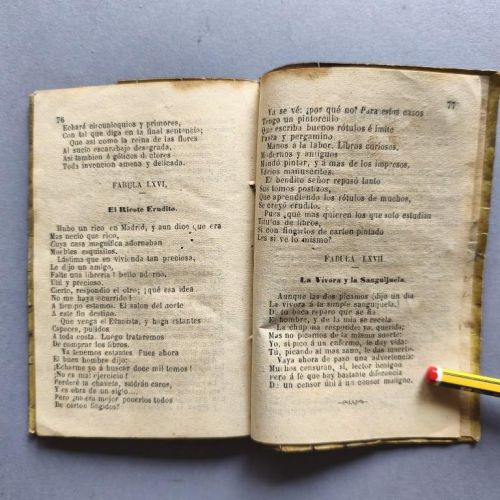 76
Echará circunloquios y primores,
Con tal que diga en la final sentencia;
Que asi como la reina de las flores
Al sucio escarabajo desgrada,
Asi tambien á góticos doctores
Toda invencion amena y delicada.
FABULA LXVI,
El Ricote Erudito.
Hubo un rico en Madrid, y aun dicen que era
Mas necio que rico,
Cuya casa magnífica adornaban
Muebles exquisitos.
Lástima que en vivienda tan preciosa,
Le dijo un amigo,
Falte una libreria! bello adorno,
Util y precioso.
Cierto, respondió el otro; ¡qué esa idea
No me haya ocurrido!
A tiempo estamos. El salon del norte
A este fin destino.
Que venga el Ebanista, y haga estantes
Capaces, pulidos
A toda costa. Luego trataremos
De comprar los libros.
Ya tenemos estantes Pues ahora
El buen hombre dijo:
¡Echarme yo á buscar doce mil tomos!
¡No es mal ejercicio!
Perderé la chaveta, saldrán caros,
Y es obra de un siglo....
Pero ¿no era mejor ponerlos todos
De carton fingidos?
77
Ya se vé: ¿por qué no? Para estos casos
Tengo un pintorcillo
Que escriba buenos rótulos é imite
Pasta y pergamino.
Manos á la labor. Libros curiosos,
Modernos y antiguos
Mandó pintar, y á mas de los impresos,
Varios manuscritos.
El bendito señor repasó tanto
Sus tomos postizos,
Que aprendiendo los rótulos de muchos,
Se creyó erudito.
Pues ¿qué mas quieren los que solo estudian
Titulos de libros,
Si con fingirlos de carton pintado
Les sirve lo mismo?
FABULA LXVII
La Vívora y la Sanguijuela.
Aunque las dos picamos (dijo un dia
La vívora á la simple sanguijuela)
De tu boca reparo que se fia
El hombre, y de la mia se recela.
La chupona responde: ya, querida;
Mas no picamos de la misma suerte:
Yo, si pico á un enfermo, le doy vida;
Tú, picando al mas sano, le das muerte.
Vaya ahora de paso una advertencia:
Muchos censuran, si, lector benigno
Pero á fé que hay bastante diferencia
De un censor útil á un censor maligno.